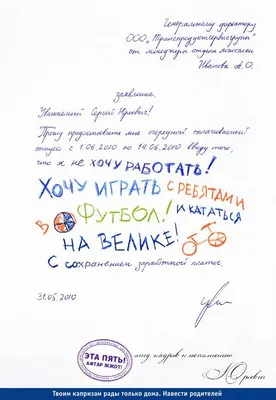 Генеральному директору
ООО „Транспродуктсервисгрупп“
от менеджера отдела логистики
Иванова А.О.
заявление.
Уважаемый Сергей Юрьевич!
Прошу предоставить мне очередной оплачиваемый
отпуск с 1.06.2010 по 14.06.2010 ввиду того,
что я не хочу работать!
Хочу играть с ребятами
в футбол! и кататься
на велике!
С сохранением заработной платы.
31.05.2010
ЭТА ПЯТЬ!
АФТАР ЖЖОТ!
отдел кадров к исполнению
Юрьевич
Твоим капризам рады только дома. Навести родителей